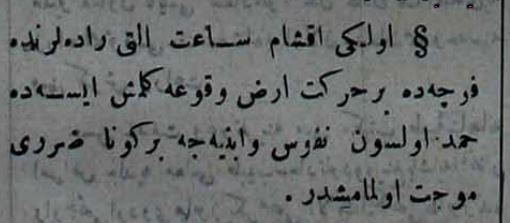 § اولكی اقشام ســاعت التی راده‌لرنده
فوچه‌ده بر حركت ارض وقوعه كلمش ایســه‌ده
حمد اولسون نفوس وابنیه‌جه بر كونا ضرری
موجت اولمامشدر .